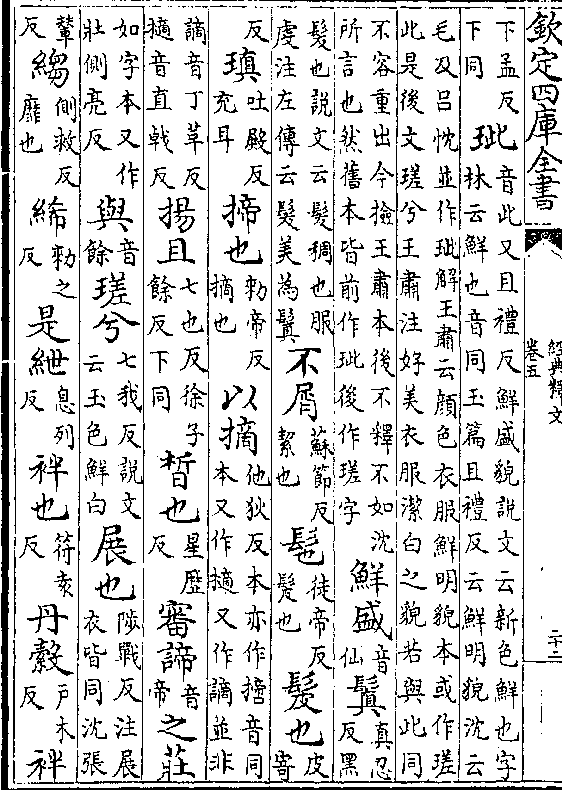 欽定四庫全書
經典釋文
卷五
二十二
下孟反下同 玼 音此又且禮反鮮盛貌說文云新色鮮也字林云鮮也音同玉篇且禮反云鮮明貌沈云
毛及呂忱並作玼解王肅云顔色衣服鮮明貌本或作瑳此是後文瑳兮王肅注好美衣服潔白之貌若與此同
不容重出今撿王肅本後不釋不如沈所言也然舊本皆前作玼後作瑳字 鮮盛 音仙 鬒 真忍反黑
髮也說文云髮稠也服虔注左傳云髮美為鬒 不屑 蘇節反絜也 髢 徒帝反髲也 髲也 皮寄
反 瑱 吐殿反充耳 揥也 勑帝反摘也 以摘 他狄反本亦作擔音同本又作擿又作謫並非
謫音丁革反擿音直戟反 揚且 七也反徐子餘反下同 皙也 星歷反 審諦 音帝 之莊
如字本又作壯側亮反 與 音餘 瑳兮 七我反說文云玉色鮮白 展也 陟戰反注展衣皆同沈張
輦反 縐 側救反靡也 絺 勑之反 是紲 息列反 袢也 符袁反 丹縠 戶木反 袢